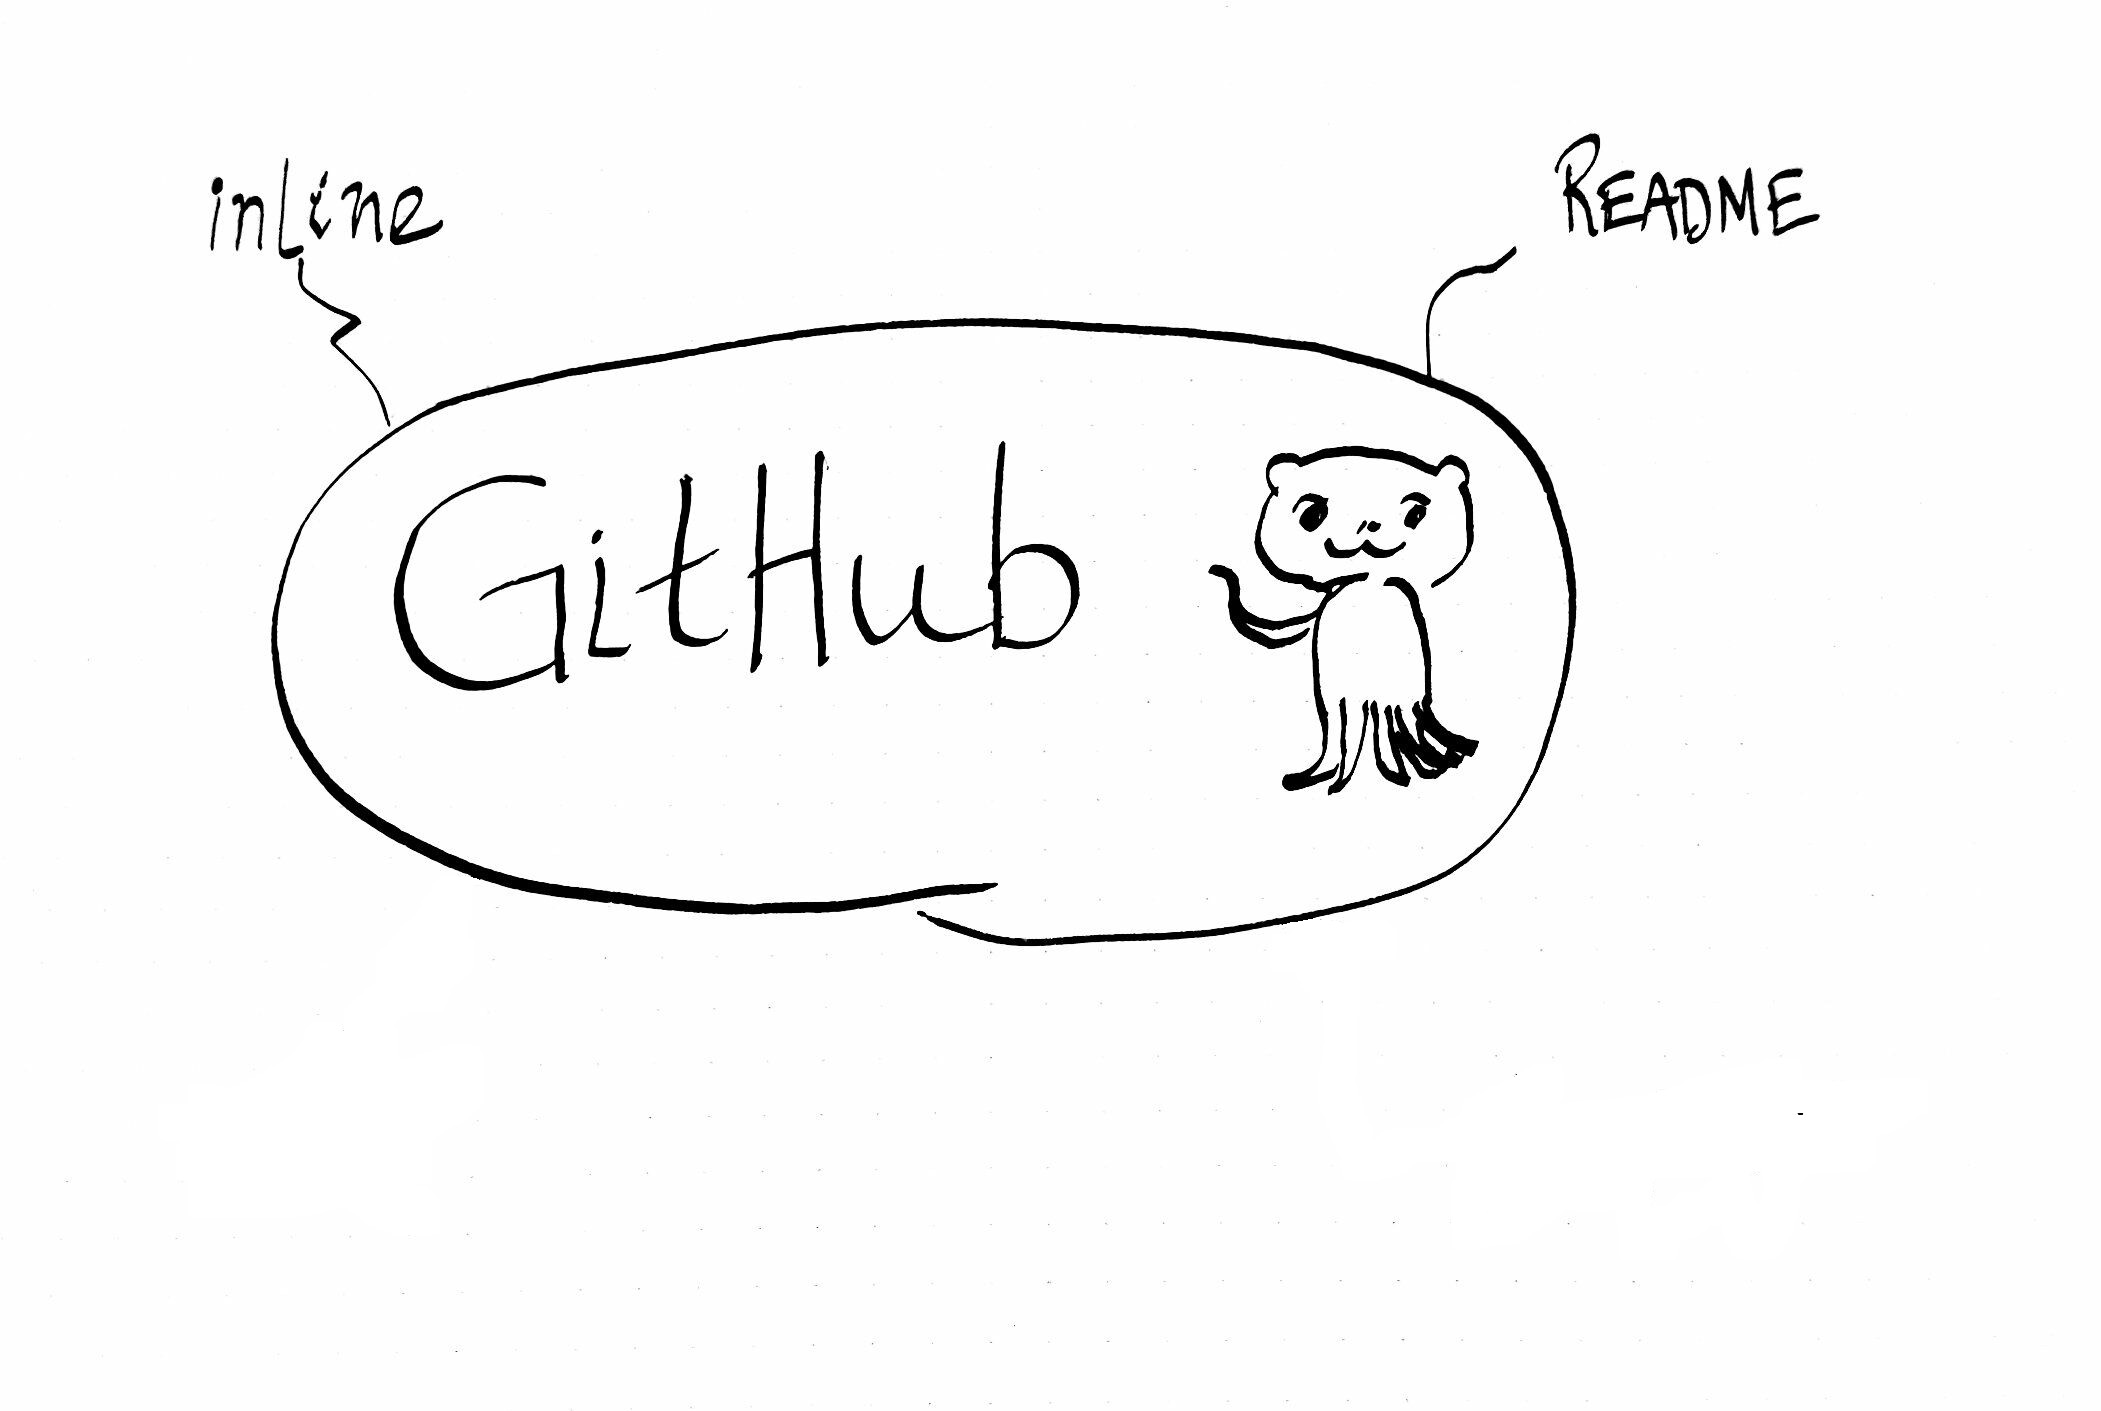 inline
README
GitHub